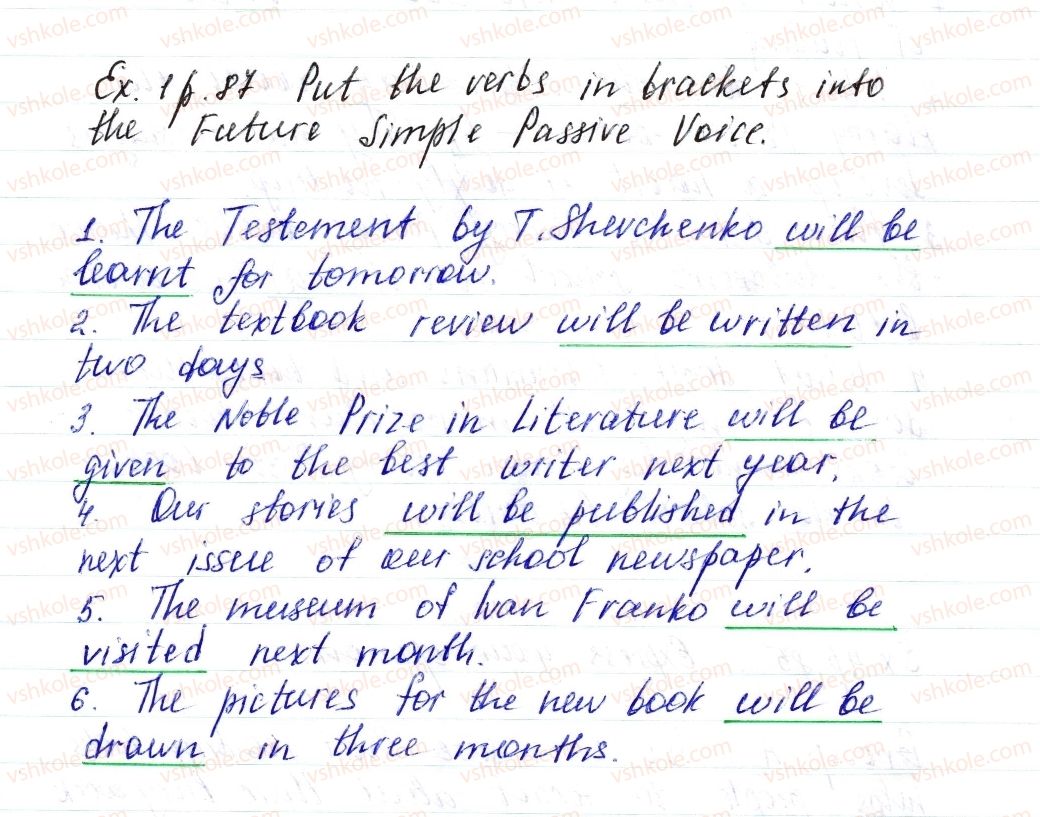 Ex. 1 p. 87 Put the verbs in brackets into
the Future Simple Passive Voice.
1. The Testement by T. Shevchenko will be
learnt for tomorrow.
2. The textbook review will be written in
two days
3. The Noble Prize in Literature will be
given to the best writer next year.
4. Our stories will be published in the
next issue of our school newspaper.
5. The museum of Ivan Franko will be
visited next month.
6. The pictures for the new book will be
drawn in three months.